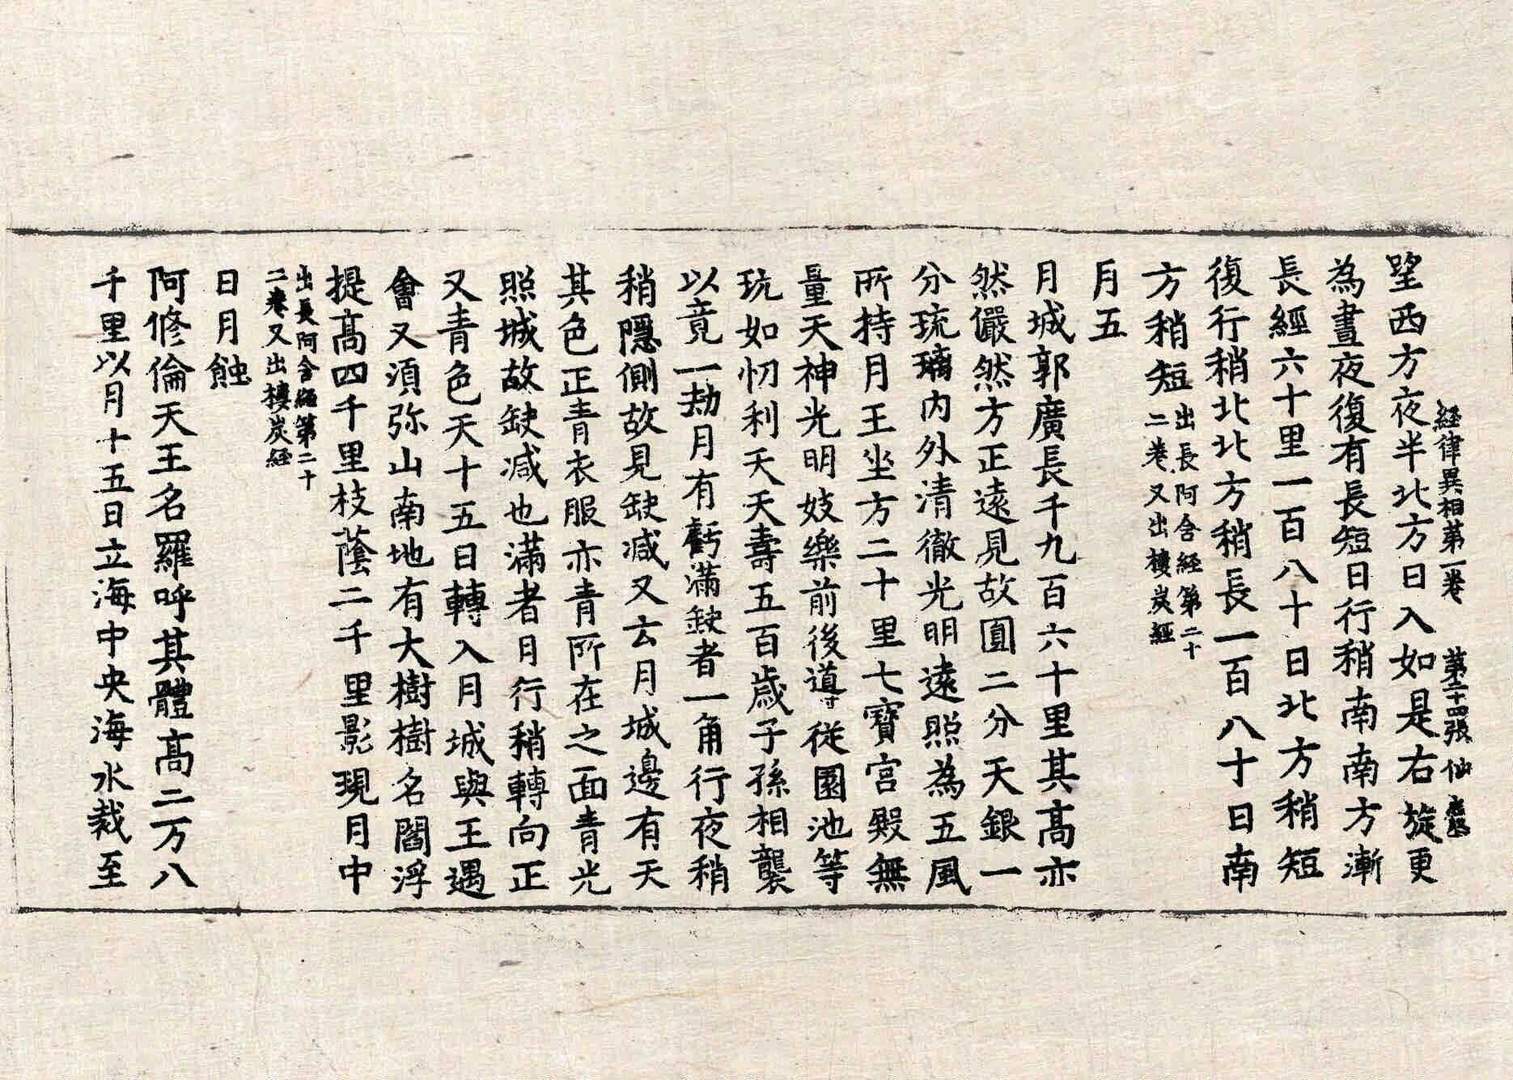 経律異相第一卷 第二十四張 仙
望西方夜半北方日入如是右旋更
為晝夜復有長短日行稍南南方漸
長經六十里一百八十日北方稍短
復行稍北北方稍長一百八十日南
方稍短出長阿含経第二十
二卷又出樓炭経
月五
月城郭廣長千九百六十里其高亦
然儼然方正遠見故圎二分天銀一
分琉璃内外清徹光明遠照為五風
所持月王坐方二十里七寶宮殿無
量天神光明妓樂前後導従園池等
玩如忉利天天壽五百歲子孫相襲
以竟一劫月有虧滿缺者一角行夜稍
稍隱側故見缺減又云月城邊有天
其色正青衣服亦青所在之面青光
照城故缺減也滿者月行稍轉向正
又青色天十五日轉入月城與王遇
會又須弥山南地有大樹樹名閻浮
提高四千里枝蔭二千里影現月中
出長阿含経第二十
二卷又出樓炭経
日月蝕
阿修倫天王名羅呼其體高二万八
千里以月十五日立海中央海水裁至